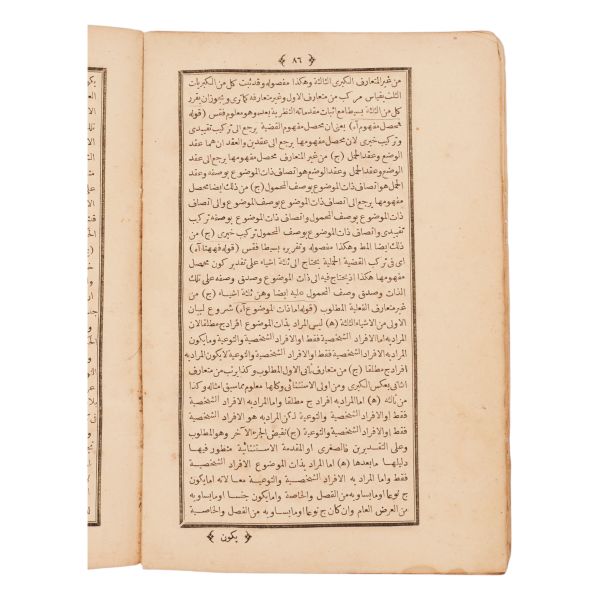 ﴿ ٨٦ ﴾
من غير المتعارف الكبرى الثالثة وهكذا مفصوله وقد ثبت كل من الكبريات
الثلث بقياس مركب من متعارف الاول وغير متعارفه كما ترى ويجوز ان يقرر
كل من الثلثة بسيطا مع اثبات مقدماته النظرية بعده وهو معلوم فقس (قوله
محصل مفهوم آه) يعنى ان محصل مفهوم القضية يرجع الى تركيب تقييدى
وتركيب خبرى لان محصل مفهومها يرجع الى عقدين والعقد ان هما عقد
الوضع وعقد الحمل (ج) من غير المتعارف محصل مفهومها يرجع الى عقد
الوضع وعقد الحمل وعقد الوضع هو اتصاف ذات الموضوع بوصفه وعقد
الحمل هو اتصاف ذات الموضوع بوصف المحمول (ج) من ذلك ايضا محصل
مفهومها يرجع الى اتصاف ذات الموضوع بوصف الموضوع والى اتصاف
ذات الموضوع بوصف المحمول واتصاف ذات الموضوع بوصفه تركيب
تقييدى واتصاف ذات الموضوع بوصف المحمول تركيب خبرى (ج) من
ذلك ايضا المط وهكذا مفصوله وتقريره بسيطا فقس (قوله فههنا آه)
اى فى تركب القضية الحملية يحتاج الى ثلثة اشياء على تقدير كون محصل
مفهومها هكذا اذ يحتاج فيه الى ذات الموضوع وصدق وصفه على تلك
الذات وصدق وصف المحمول عليه ايضا وهن ثلثة اشياء (ج) من
غير متعارف الفعلية المطلوب (قوله اما ذات الموضوع آه) شروع لبيان
الاول من الاشياء الثلثة (ه) ليس المراد بذات الموضوع افراد ج مطلقا لان
المراد به اما الافراد الشخصية فقط او الافراد الشخصية والنوعية وكلما كان
المراد به الافراد الشخصية فقط او الافراد الشخصية والنوعية لا يكون المراد به
افراد ج مطلقا (ج) من متعارف ثانى الاول المطلوب وكذا يرتب من متعارف
الثانى بعكس الكبرى ومن اولى الاستثنائى وكلها معلوم مما سبق امثاله وكذا
من ثالثه (ه) اما المراد به افراد ج مطلقا واما المراد به الافراد الشخصية
فقط او الافراد الشخصية والنوعية لكن المراد به هو الافراد الشخصية
فقط او الافراد الشخصية والنوعية (ج) نقيض الجزء الآخر وهو المطلوب
وعلى التقديرين فالصغرى او المقدمة الاستثنائية منظور فيها
دليلها ما بعدها (ه) اما المراد بذات الموضوع الافراد الشخصية
فقط واما المراد به الافراد الشخصية والنوعية معا لانه اما يكون
ج نوعا او ما يساويه من الفصل والخاصة واما يكون جنسا او ما يساويه
من العرض العام وان كان ج نوعا او ما يساويه من الفصل والخاصية
﴿ يكون ﴾